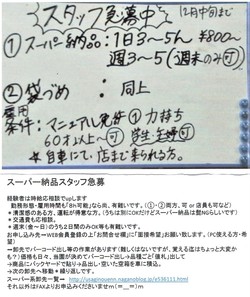 スタッフ急募中 12月中旬まで
① スーパー納品：1日3〜5h ¥800〜
週3〜5(週末のみ可)
② 袋づめ：同上
雇用
条件：マニュアル免許 ① 力持ち
60才以上〜可 学生・主婦可
* 自車にて、店まで来られる方。
スーパー納品スタッフ急募
経験者は時給応相談でupします
勤務形態・雇用時間も「当り可能」なら尚、有難いです。（①・②両方、可 or 店長も可など）
* 清潔感のある方、運転が得意な方。（うちは別にOKだけどスーパー納品は髭NGらしいです）
* 交通費も応相談。
* 週末（金〜日）のうち２日間のみOK等も有難いです。
お申し込み先→WEB会員登録の上「お問合せ欄」に「面接希望」お願い致します。（PC使える方・希望）
→卸先でバーコード出し等の作業があります（難しくはないですが、覚える迄はちょっと大変かも？）価格も日々、当園が決めてバーコード出し→品種ごと「値札」出し
→商品にバックヤードで貼り→品出し→空いた空箱を車に積込。
→次の卸先へ移動＊繰り返しです。
スーパー系卸先一覧ー
それ以外はFAXよりお申込みくださいませm(＝＿＝)m